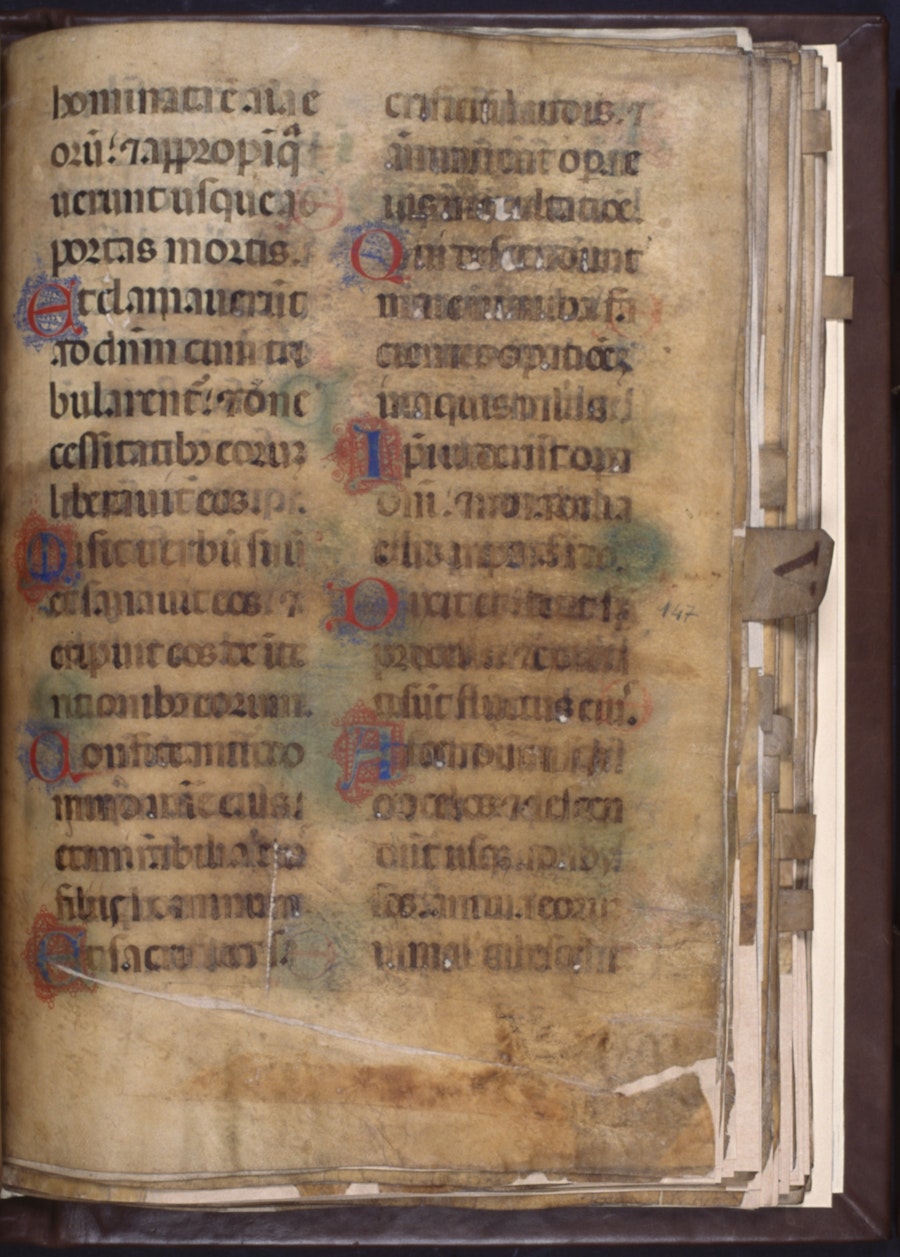 hominata ē aīa e
orū: ⁊ appropīq̄
uerunt usque ad
portas mortis.
Et clamauerunt
ad dn̄m cum tri
bularent᷑: ⁊ de ne
cessitatibꝫ eorum
liberauit eos ipse.
Misit uerbū suū
et sanauit eos: ⁊
eripuit eos de inte
ritionibꝫ eorum.
Confiteant᷑ dn̄o
mīe eius:
et mirabilia eius
filiis hominum
Et sacrificent sa
crificiū laudis: ⁊
annuncient opera
eius in exultatiōe
Qui descendunt
mare in nauibꝫ fa
cientes operatiōeꝫ
in aquis multis
Ipi uiderunt opa
dn̄i: ⁊ mirabilia
eius in profundo.
Dixit et stetit sp̄s
procelle: ⁊ exaltati
sunt fluctus eius.
Ascendunt usqꝫ
ad celos: ⁊ descen
dunt usqꝫ ad abys
sos: anima eorum
in malis tabescebat
147
V